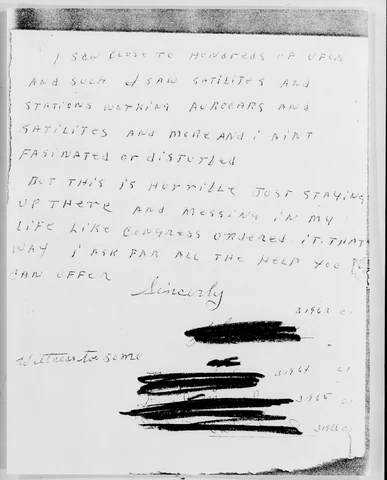 I SAW CLOSE TO HUNDREDS OF UFOS
AND SUCH I SAW SATILITES AND
STATIONS WORKING AUROCARS AND
SATILITES AND MORE AND I AINT
FASINATED OR DISTURBED
BUT THIS IS HORRIBLE JUST STAYING
UP THERE AND MESSING IN MY
LIFE LIKE CONGRESS ORDERED IT. THAT
WAY I ASK FAR ALL THE HELP YOU
CAN OFFER
Sincerly
31963 C1
Witness to some
31964 C1
31965 C1